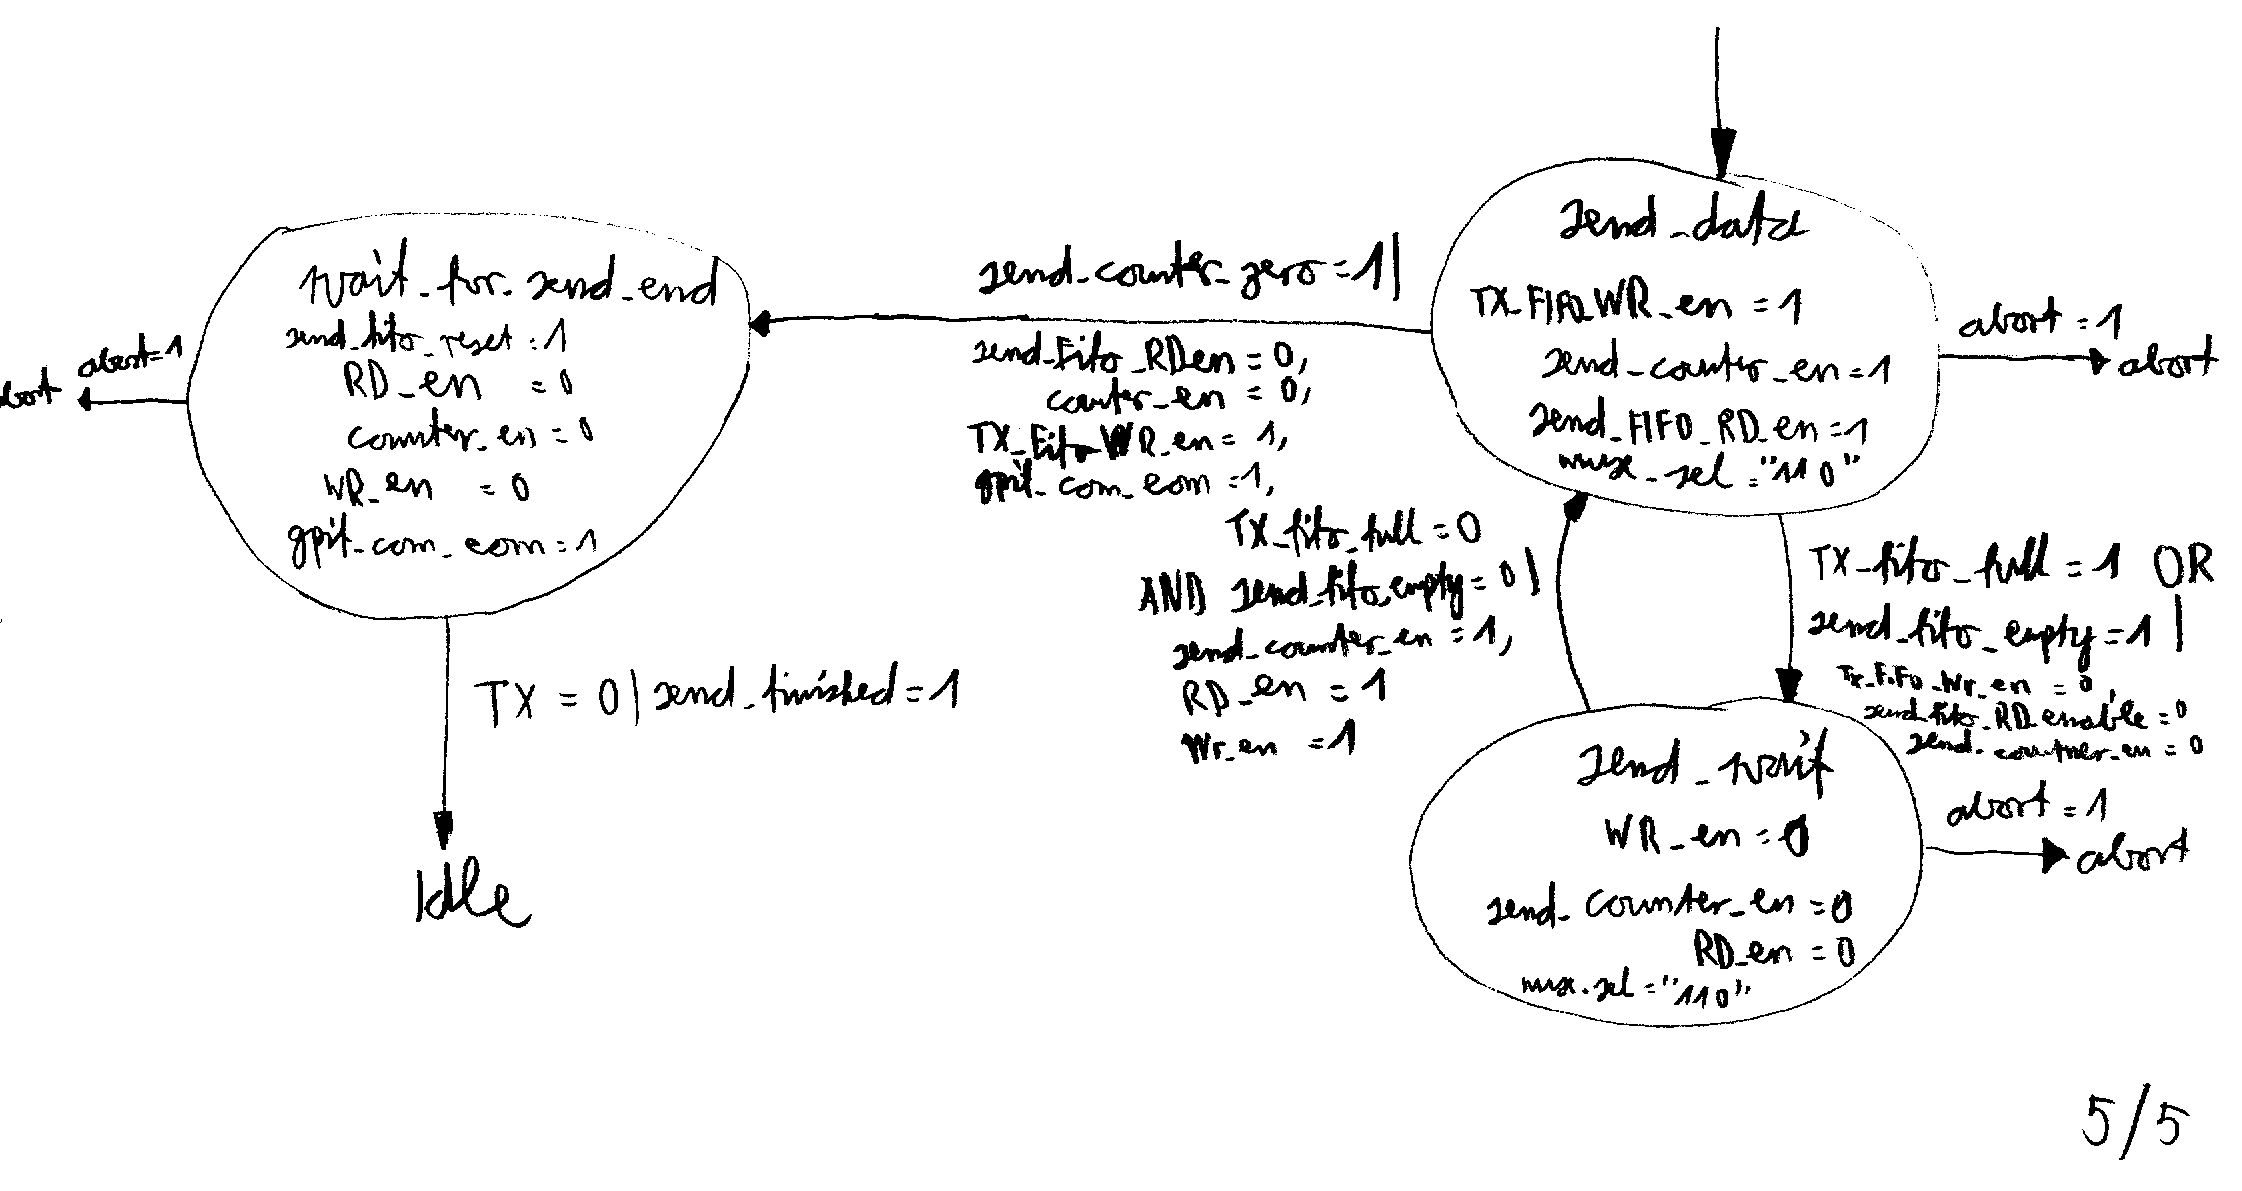 send_data
TX_FIFO_WR_en = 1
send_counter_en = 1
send_FIFO_RD_en = 1
mux_sel = "110"
abort = 1
abort
send_counter_zero = 1|
send_Fifo_RDen = 0,
couter_en = 0,
TX_Fifo_WR_en = 1,
gpif_com_eom = 1,
wait_for_send_end
send_fifo_reset = 1
RD_en = 0
counter_en = 0
WR_en = 0
gpif_com_eom = 1
abort = 1
bort
TX = 0 | send_finished = 1
Idle
TX_fifo_full = 0
AND send_fifo_empty = 0 |
send_counter_en = 1,
RD_en = 1
Wr_en = 1
TX_fifo_full = 1 OR
send_fifo_empty = 1 |
Tx_FiFo_Wr_en = 0,
send_fifo_RD_enable = 0
send_coutner_en = 0
send_wait
WR_en = 0
send_counter_en = 0
RD_en = 0
mux.sel = "110"
abort = 1
abort
5/5